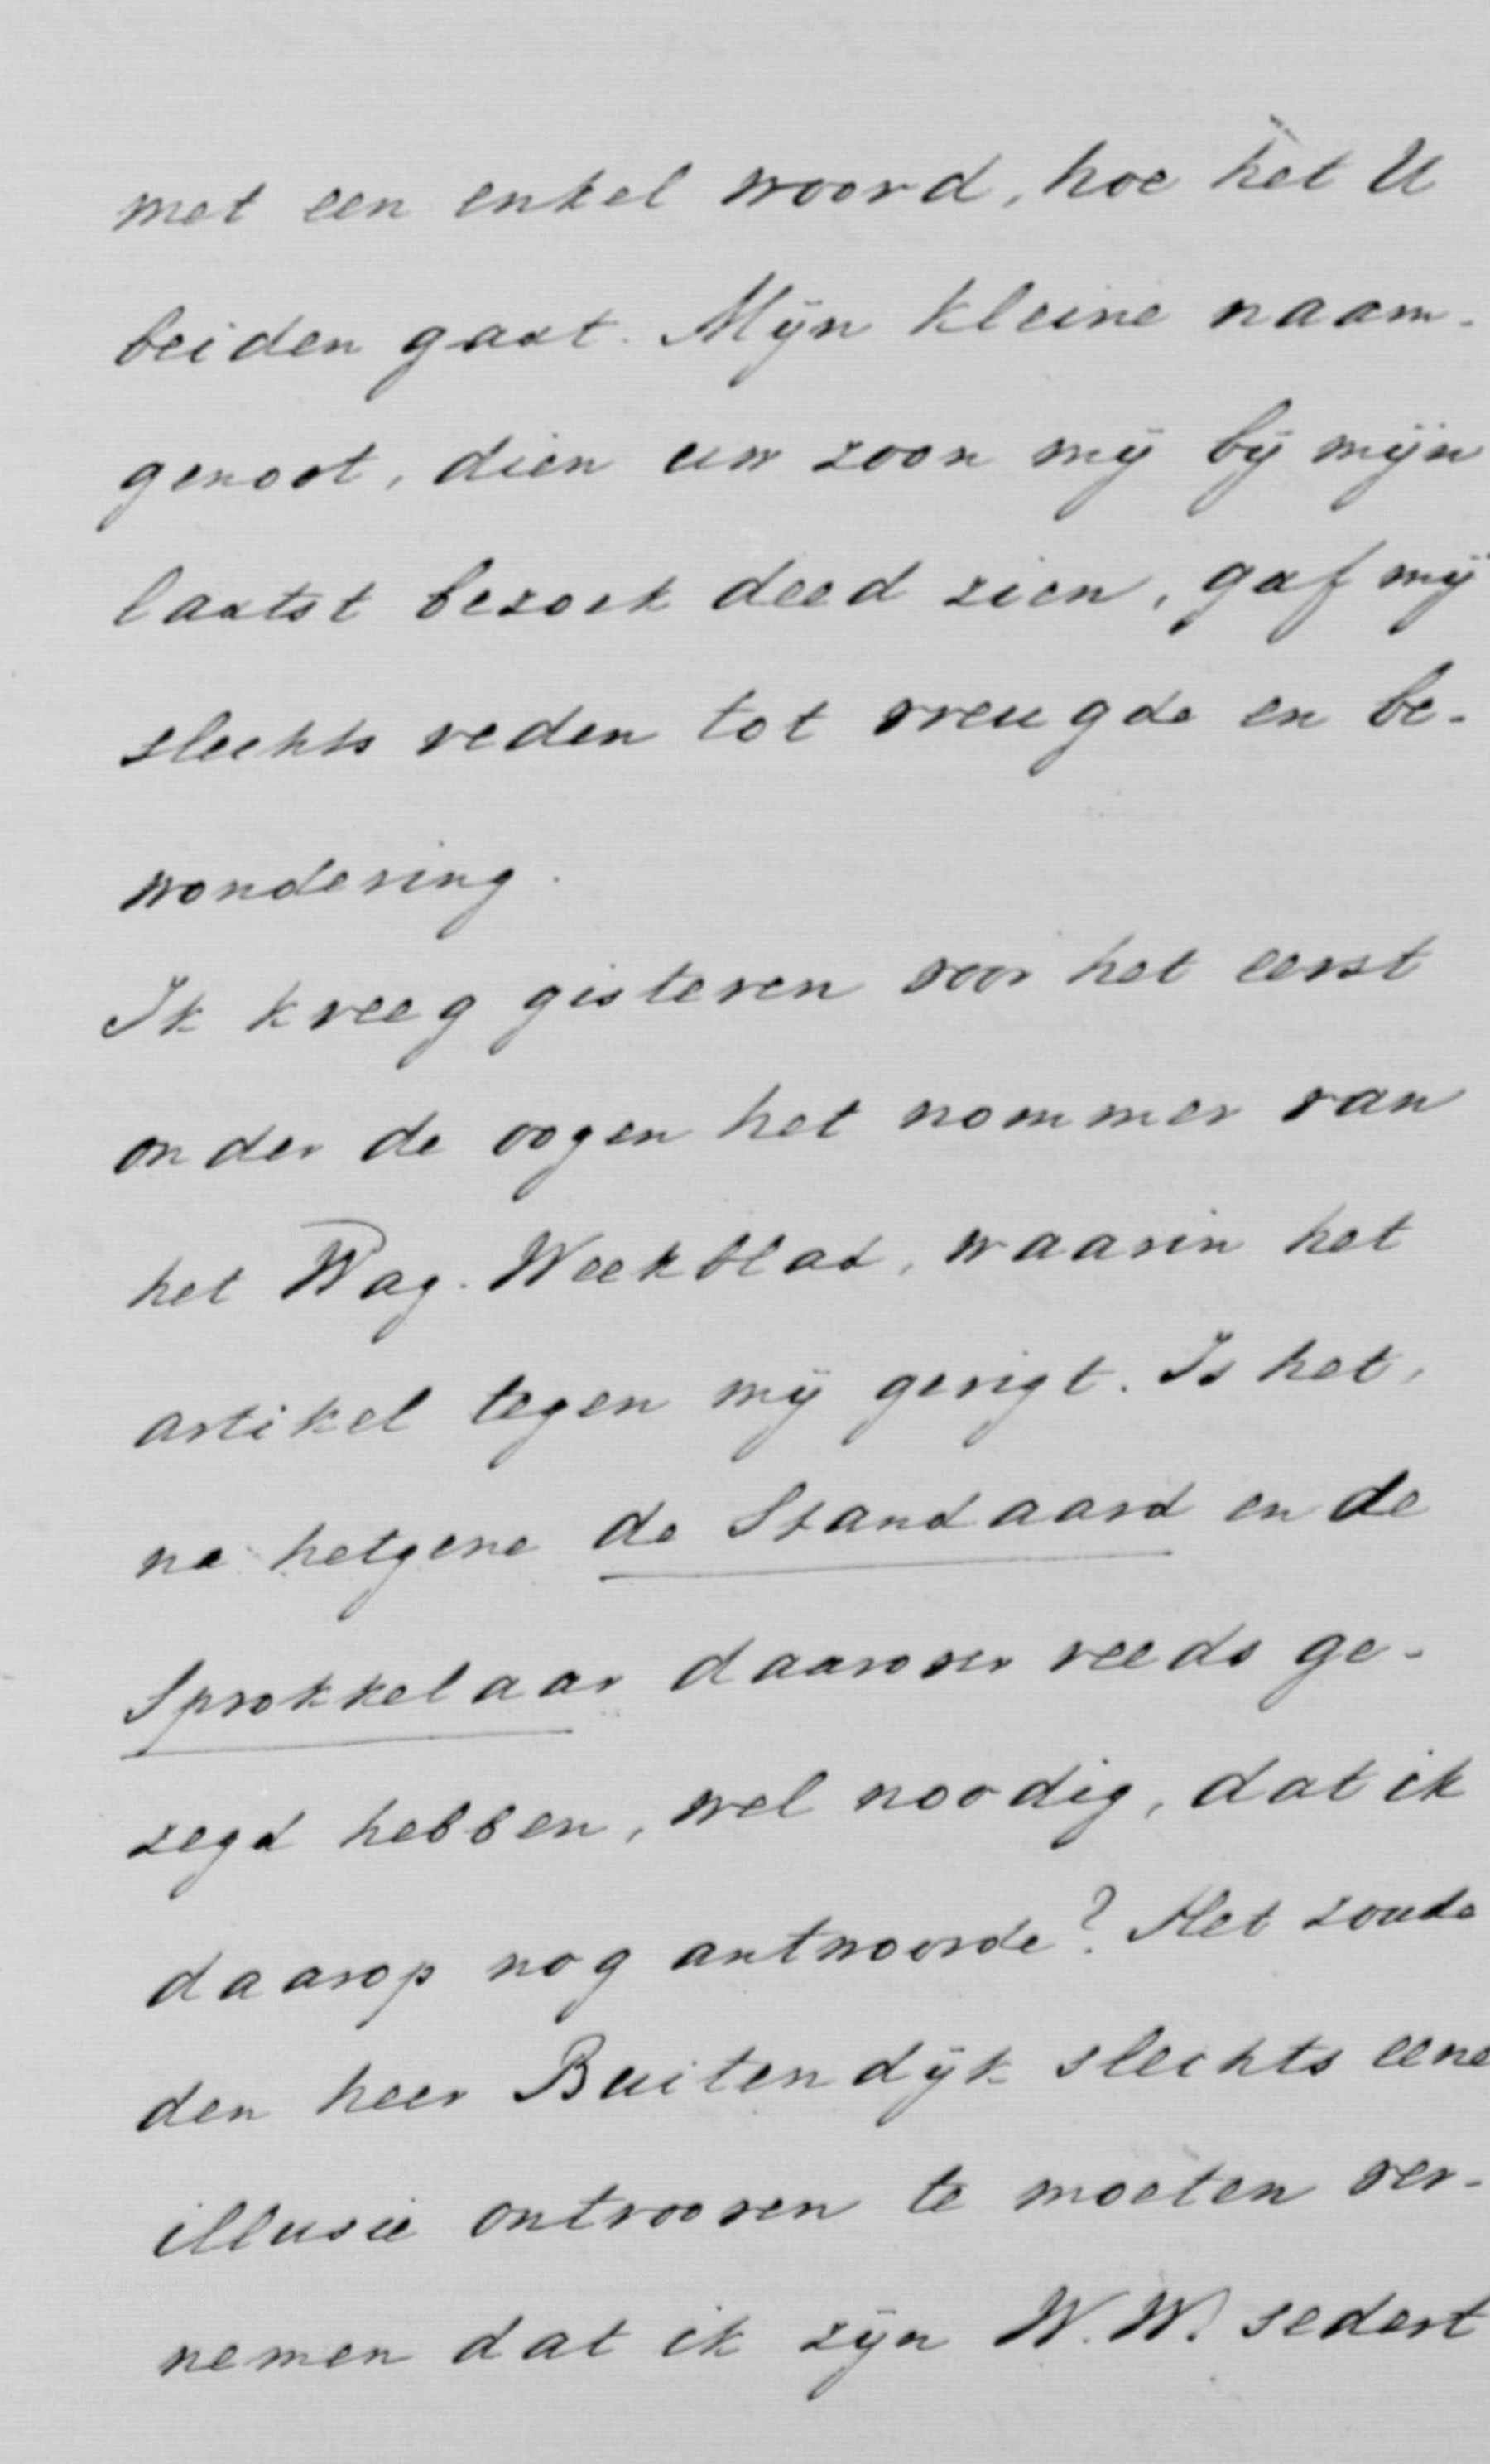 met een enkel woord, hoe het U
beiden gaat. Mijn kleine naam-
genoot, dien uw zoon mij bij mijn
laatst bezoek deed zien, gaf mij
slechts reden tot vreugde en be-
wondering.
Ik kreeg gisteren voor het eerst
onder de oogen het nommer van
het Wag. Weekblad, waarin het
artikel tegen mij gerigt. Is het,
na hetgene de Standaard en de
Sprokkelaar daarover reeds ge-
zegd hebben, wel noodig, dat ik
daarop nog antwoorde? Het zoude
den heer Buitendijk slechts eene
illusie ontrooven te moeten ver-
nemen dat ik zijn W.W. sedert